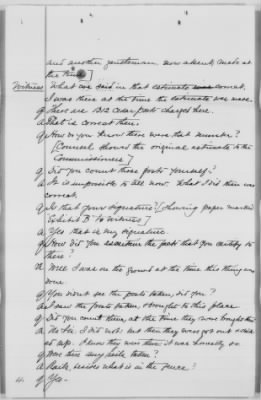 and another gentleman now absent, made at
the time]
Witness What we said in that estimate was correct.
I was there at the time the estimate was made.
Q There are 1312 cedar posts charged here.
A That is correct then.
Q How do you know there were that number?
[Counsel shows the original estimate to the
Commissioners]
Q Did you count those posts yourself?
A It is impossible to tell now. What I did then was
correct.
Q Is that your signature? [showing paper marked
Exhibit B to witness]
A Yes that is my signature.
Q How did you ascertain the posts that you certify to
there?
A Well I was on the ground at the time this thing was
done.
Q You didn't see the posts taken, did you?
A I saw the posts taken, brought to this place.
Q Did you count them at the time they were brought there
A No Sir, I did not: but then they was got out
I know they were then it was honestly so
Q Were there any rails taken?
A Rails, besides what is in the fence?
Q Yes.